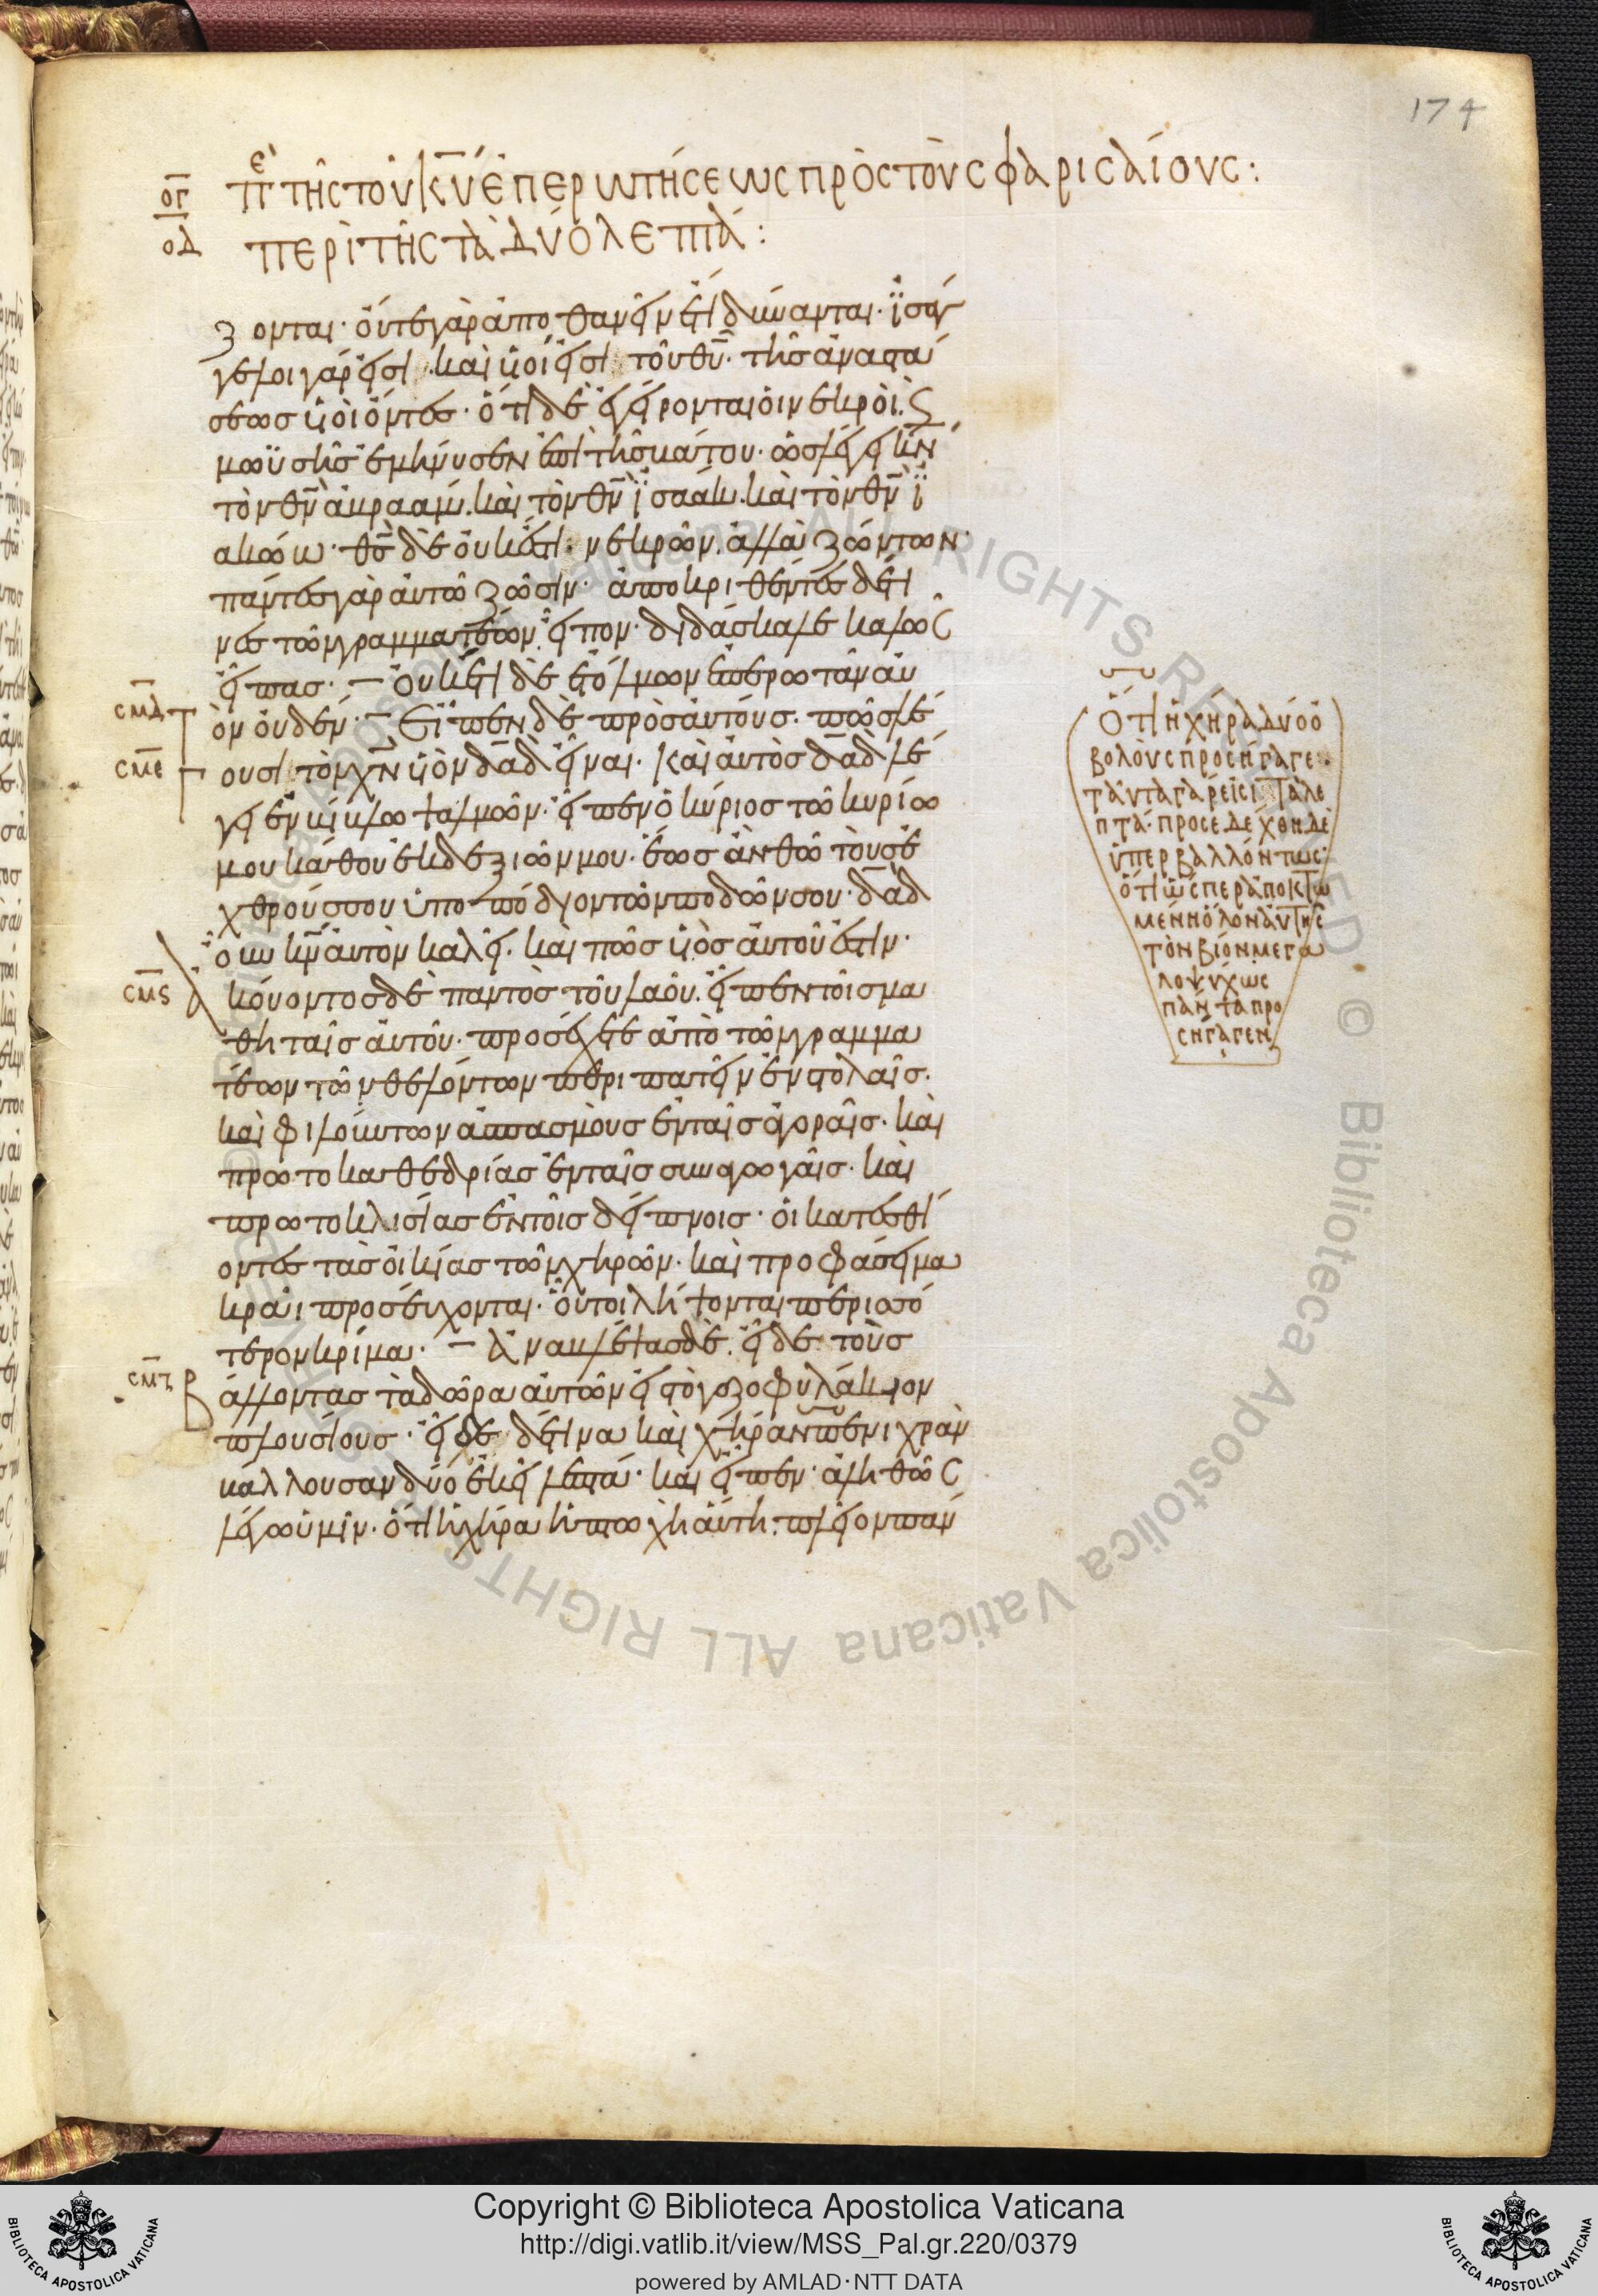 174
ογ πε τῆς τοῦ κυ ἐπερωτήσεως πρὸς τοὺς φαρισαίους:
οδ περὶ τῆς τὰ δύο λεπτά:
ζονται· οὔτε γὰρ ἀποθανεῖν ἔτι δύνανται· ἰσάγ
γελοι γάρ εἰσι· καὶ υἱοί εἰσι τοῦ θυ· τῆς ἀναστά
σεως υἱοὶ ὄντες· ὅτι δὲ ἐγείρονται οἱ νεκροὶ· ϛ
μωϋσῆς ἐμήνυσεν ἐπὶ τῆς βάτου· ὡς λέγει κν
τὸν θν ἀβραάμ· καὶ τὸν θν ἰσαάκ· καὶ τὸν θν ἰ
ακώβ· θς δὲ οὐκ ἔστι νεκρῶν ἀλλὰ ζώντων·
πάντες γὰρ αὐτῶ ζῶσιν· ἀποκριθέντες δέ τι
νες τῶν γραμματέων εἶπον· διδάσκαλε καλῶς
εἶπας· οὐκέτι δὲ ἐτόλμων ἐπερωτᾶν αὐ
σμδ ὸν οὐδέν· Εἶπεν δὲ πρὸς αὐτούς· πῶς λέ
σμε ουσι τὸν χν υἱὸν δαδ εἶναι· καὶ αὐτὸς δαδ λέ
γει ἐν βίβλω ψαλμῶν· εἶπεν ὁ κύριος τῶ κυρίω
μου κάθου ἐκ δεξιῶν μου· ἕως ἂν θῶ τοὺς ἐ
χθρούς σου ὑποπόδιον τῶν ποδῶν σου· δαδ
οὖν κν αὐτὸν καλεῖ· καὶ πῶς υἱὸς αὐτοῦ ἐστιν·
σμϛ ἀκούοντος δὲ παντὸς τοῦ λαοῦ· εἶπεν τοῖς μα
θηταῖς αὐτοῦ· προσέχετε ἀπὸ τῶν γραμμα
τέων τῶν θελόντων περιπατεῖν ἐν στολαῖς·
καὶ φιλούντων ἀσπασμοὺς ἐν ταῖς ἀγοραῖς· καὶ
πρωτοκαθεδρίας ἐν ταῖς συναγωγαῖς· καὶ
πρωτοκλισίας ἐν τοῖς δείπνοις· οἱ κατεσθί
οντες τὰς οἰκίας τῶν χηρῶν· καὶ προφάσει μα
κρᾶι προσεύχονται· οὗτοι λήψονται περισσό
τερον κρίμα· Ἀναβλέψας δὲ εἶδε τοὺς
σμζ βάλλοντας τὰ δῶρα αὐτῶν εἰς τὸ γαζοφυλάκιον
πλουσίους· εἶδε δέ τινα καὶ χήραν πενιχρὰν
βάλλουσαν δύο ἐκεῖ λεπτά· καὶ εἶπεν· ἀληθῶς
λέγω ὑμῖν· ὅτι ἡ χήρα ἡ πτωχὴ αὕτη· πλεῖον πάν
Ὅτι ἡ χήρα δύο ὀ
βολοὺς προσήγαγε·
ταῦτα γάρ εἰσι τὰ λε
πτά· προσεδέχθη δὲ
ὑπερβαλλόντως·
ὅτι ὥσπερ ἀποκτω
μένη ὅλον αὐτῆς
τὸν βίον μεγα
λοψύχως
πάντα προ
σήγαγεν
Copyright © Biblioteca Apostolica Vaticana
http://digi.vatlib.it/view/MSS_Pal.gr.220/0379
powered by AMLAD·NTT DATA
BIBLIOTECA APOSTOLICA VATICANA
BIBLIOTECA APOSTOLICA VATICANA